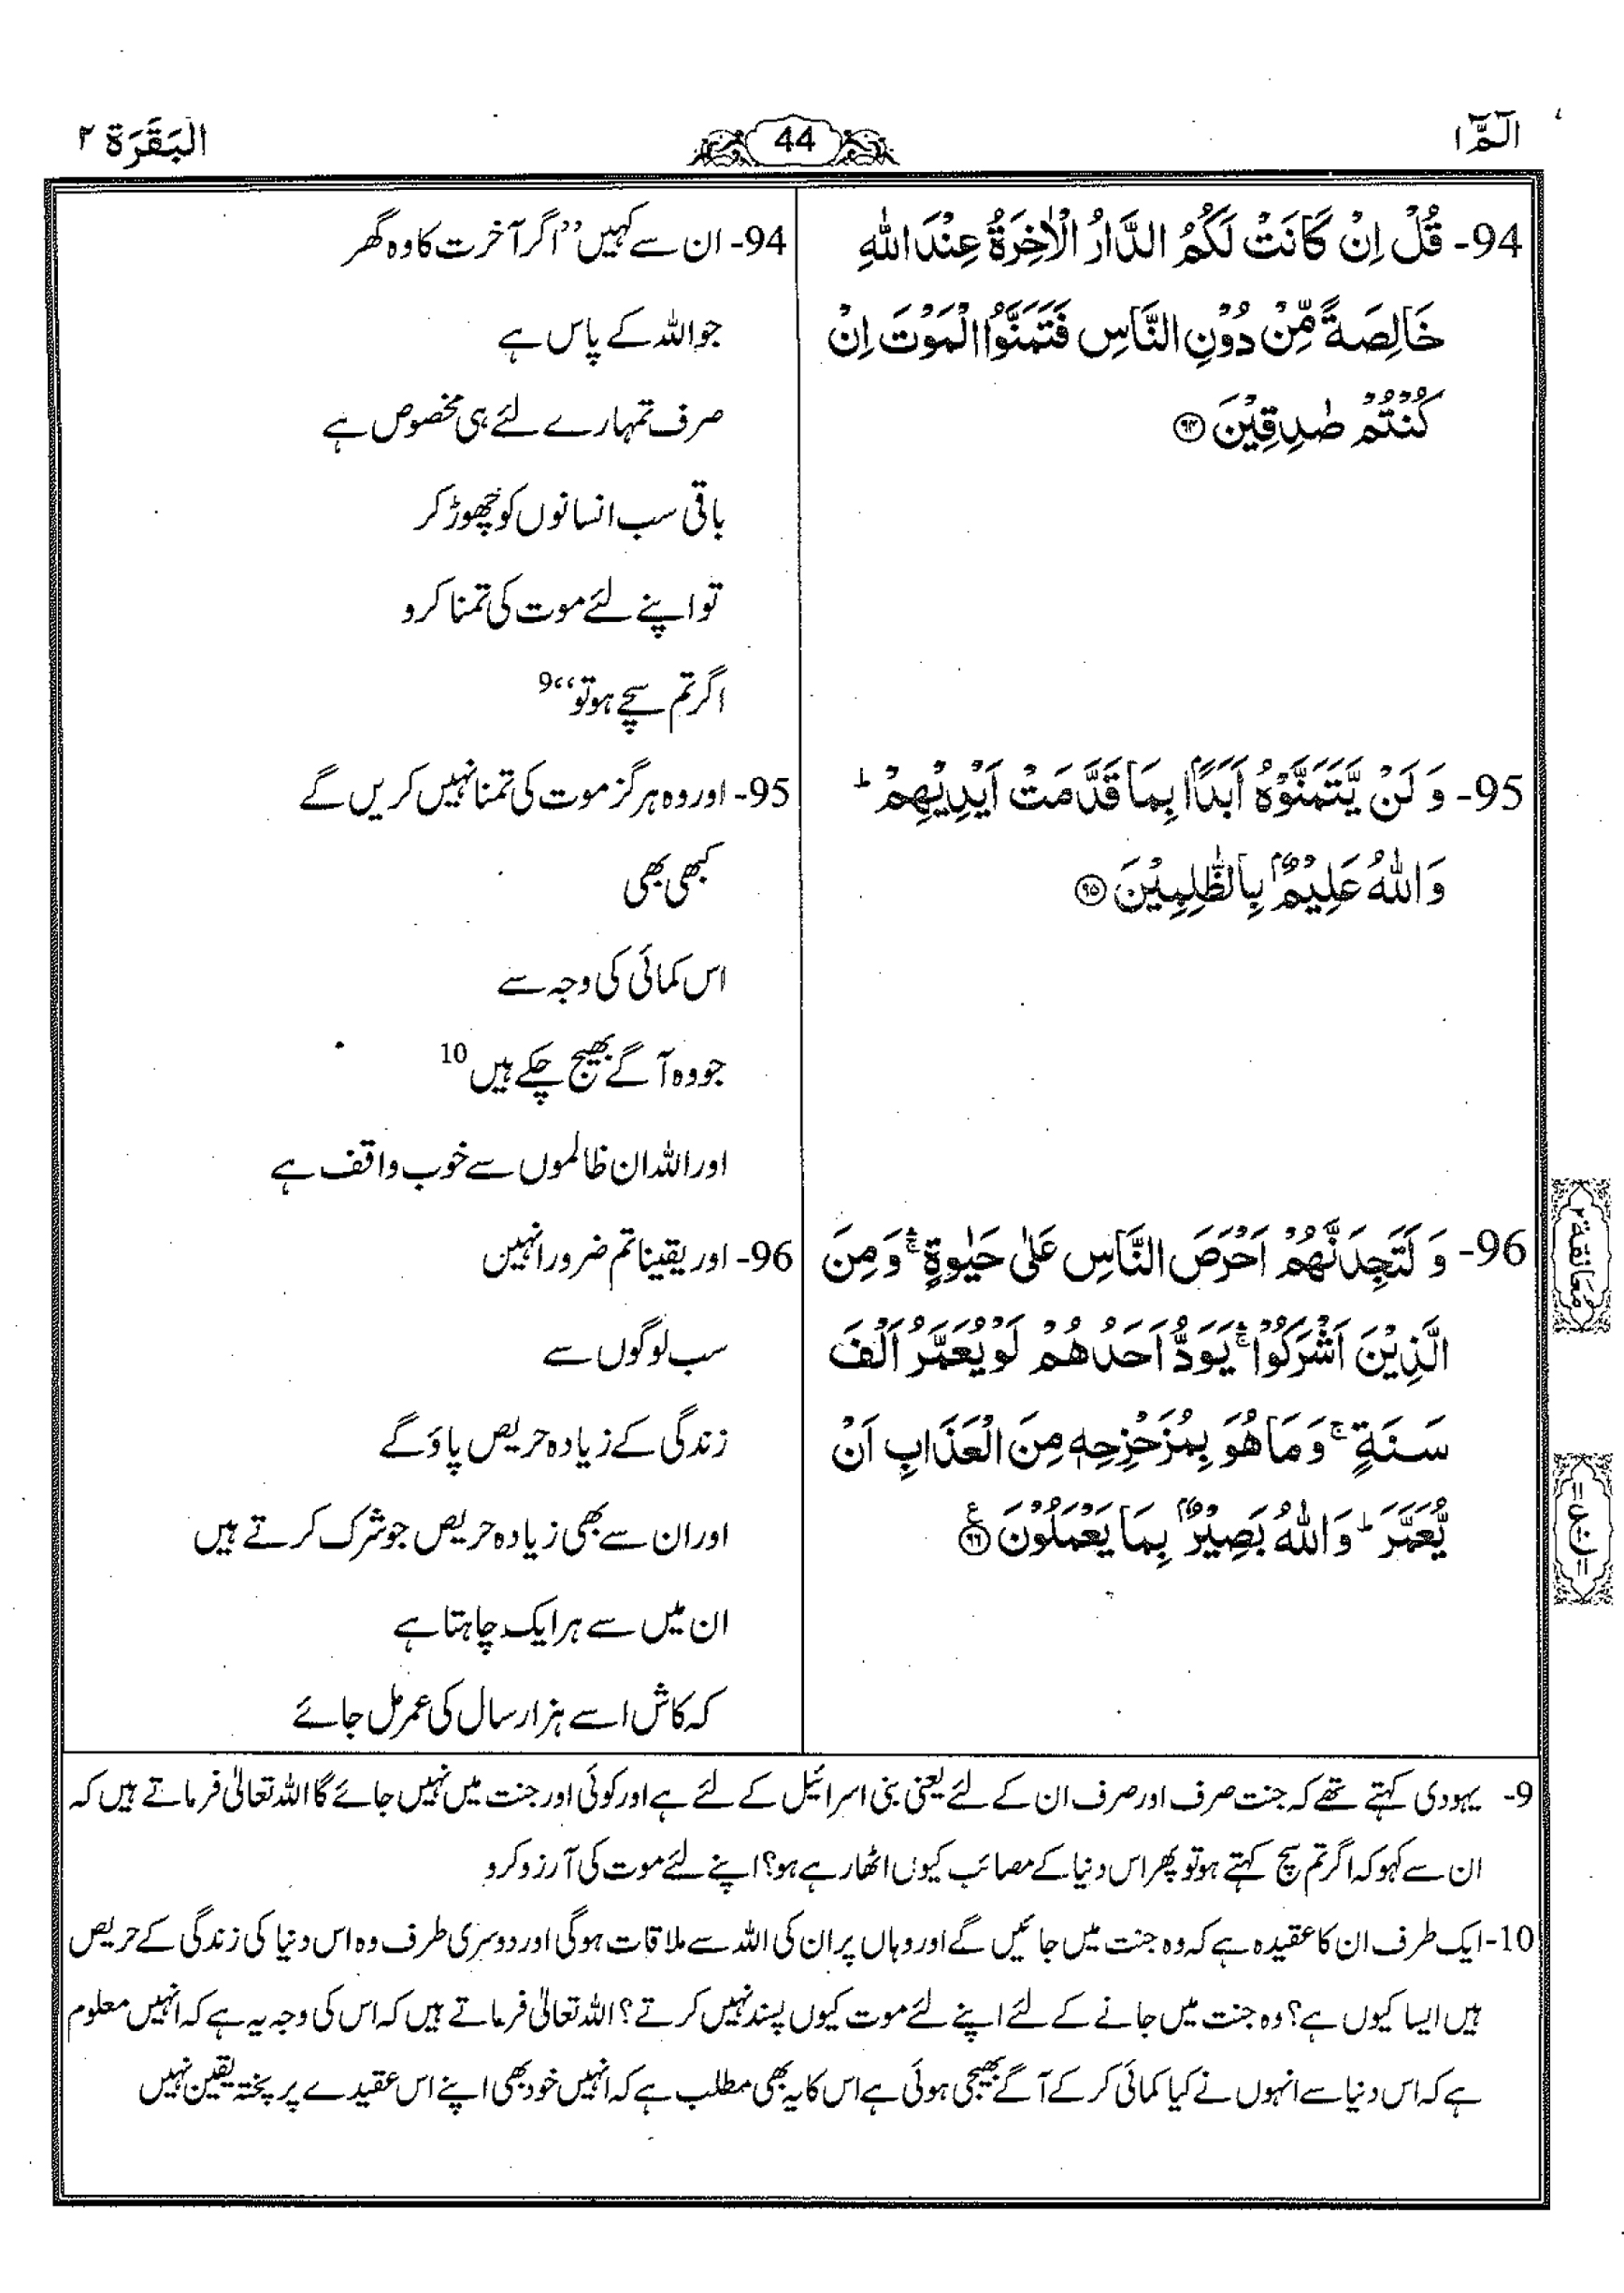 الٓمّٓ ١
44
البَقَرَة ٢
94- قُلْ اِنْ كَانَتْ لَكُمُ الدَّارُ الْاٰخِرَةُ عِنْدَ اللّٰهِ
خَالِصَةً مِّنْ دُوْنِ النَّاسِ فَتَمَنَّوُا الْمَوْتَ اِنْ
كُنْتُمْ صٰدِقِيْنَ ﴿۹۴﴾
95- وَ لَنْ يَّتَمَنَّوْهُ اَبَدًۢا بِمَا قَدَّمَتْ اَيْدِيْهِمْ ؕ
وَاللّٰهُ عَلِيْمٌۢ بِالظّٰلِمِيْنَ ﴿۹۵﴾
96- وَ لَتَجِدَنَّهُمْ اَحْرَصَ النَّاسِ عَلٰى حَيٰوةٍ ۛۚ وَ مِنَ
الَّذِيْنَ اَشْرَكُوْا ۛۚ يَوَدُّ اَحَدُهُمْ لَوْ يُعَمَّرُ اَلْفَ
سَنَةٍ ۚ وَمَا هُوَ بِمُزَحْزِحِهٖ مِنَ الْعَذَابِ اَنْ
يُّعَمَّرَ ؕ وَاللّٰهُ بَصِيْرٌۢ بِمَا يَعْمَلُوْنَ ﴿۹۶﴾ ع
94- ان سے کہیں ’’اگر آخرت کا وہ گھر
جو اللہ کے پاس ہے
صرف تمہارے لئے ہی مخصوص ہے
باقی سب انسانوں کو چھوڑ کر
تو اپنے لئے موت کی تمنا کرو
اگر تم سچے ہو تو‘‘ 9
95- اور وہ ہرگز موت کی تمنا نہیں کریں گے
کبھی بھی
اس کمائی کی وجہ سے
جو وہ آگے بھیج چکے ہیں 10
اور اللہ ان ظالموں سے خوب واقف ہے
96- اور یقینا تم ضرور انہیں
سب لوگوں سے
زندگی کے زیادہ حریص پاؤ گے
اور ان سے بھی زیادہ حریص جو شرک کرتے ہیں
ان میں سے ہر ایک چاہتا ہے
کہ کاش اسے ہزار سال کی عمر مل جائے
معانقة ٢
9- یہودی کہتے تھے کہ جنت صرف اور صرف ان کے لئے یعنی بنی اسرائیل کے لئے ہے اور کوئی اور جنت میں نہیں جائے گا اللہ تعالیٰ فرماتے ہیں کہ
ان سے کہو کہ اگر تم سچ کہتے ہو تو پھر اس دنیا کے مصائب کیوں اٹھا رہے ہو؟ اپنے لئے موت کی آرزو کرو
10- ایک طرف ان کا عقیدہ ہے کہ وہ جنت میں جائیں گے اور وہاں پر ان کی اللہ سے ملاقات ہوگی اور دوسری طرف وہ اس دنیا کی زندگی کے حریص
ہیں ایسا کیوں ہے؟ وہ جنت میں جانے کے لئے اپنے لئے موت کیوں پسند نہیں کرتے؟ اللہ تعالیٰ فرماتے ہیں کہ اس کی وجہ یہ ہے کہ انہیں معلوم
ہے کہ اس دنیا سے انہوں نے کیا کمائی کر کے آگے بھیجی ہوئی ہے اس کا یہ بھی مطلب ہے کہ انہیں خود بھی اپنے اس عقیدے پر پختہ یقین نہیں